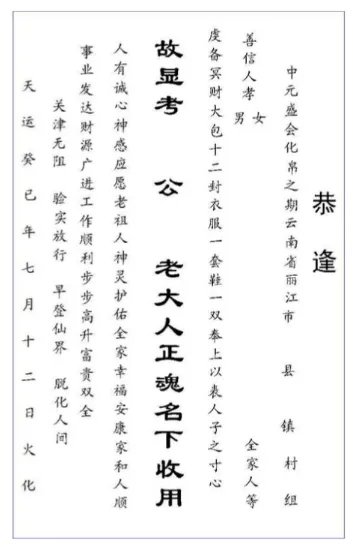 恭逢
中元盛会化帛之期云南省丽江市 县 镇 村 组
善信人孝 男 女 全家人等
虔备冥财大包十二封衣服一套鞋一双奉上以表人子之寸心
故显考 公 老大人正魂名下收用
人有诚心神感应愿老祖人神灵护佑全家幸福安康家和人顺
事业发达财源广进工作顺利步步高升富贵双全
关津无阻 验实放行 早登仙界 脱化人间
天运癸巳年七月十二日火化